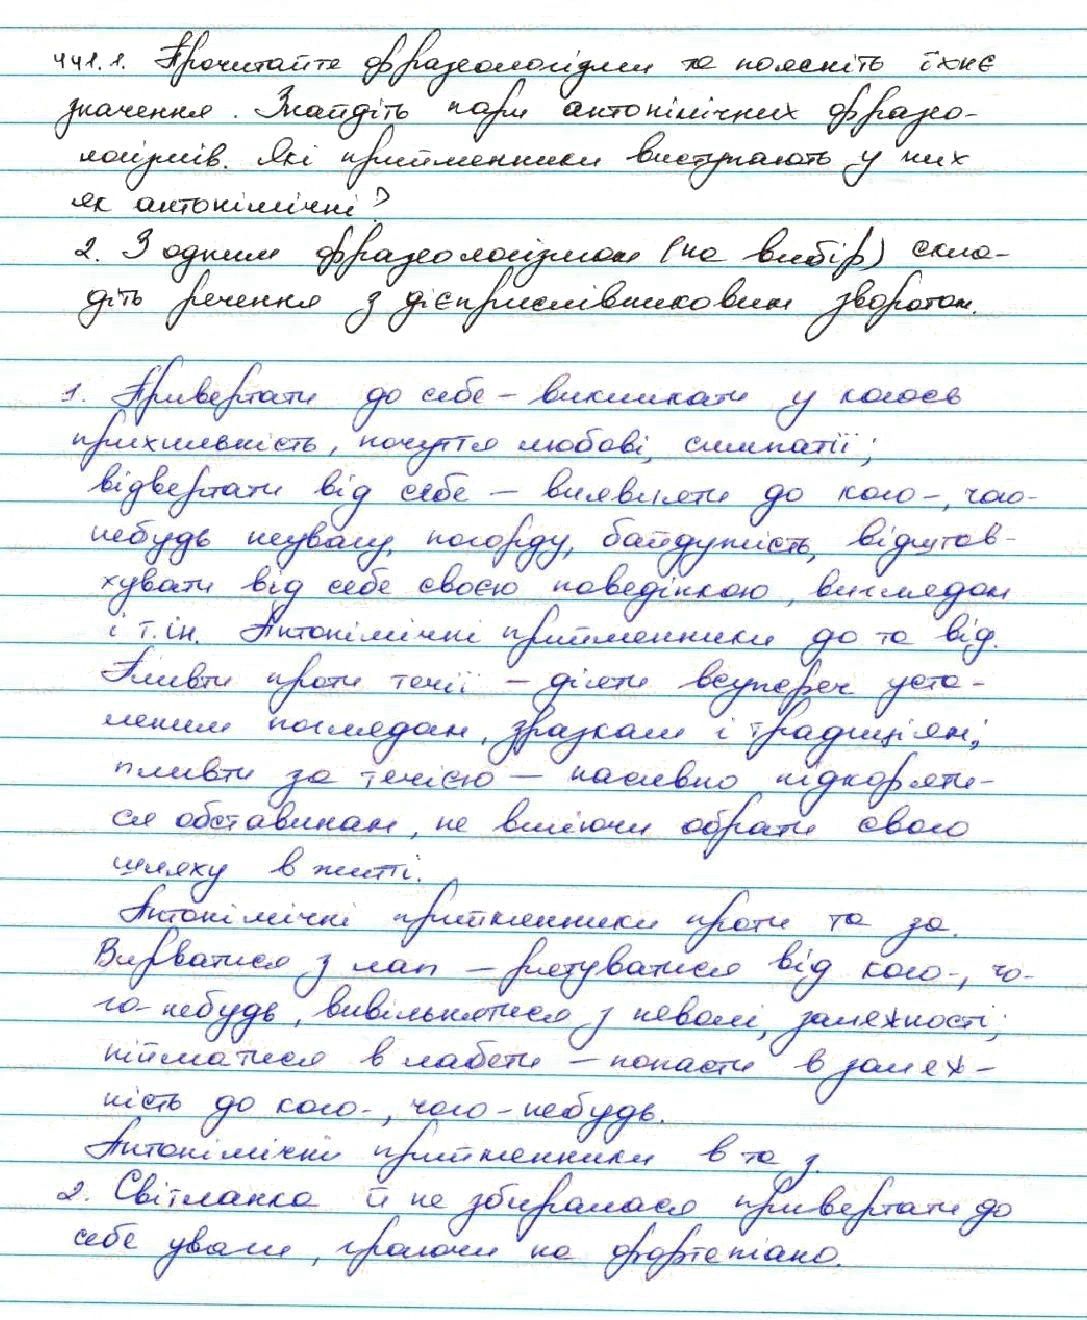 441.1. Прочитайте фразеологізми та поясніть їхнє
значення. Знайдіть пари антонімічних фразео-
логізмів. Які прийменники виступають у них
як антонімічні?
2. З одним фразеологізмом (на вибір) скла-
діть речення з дієприслівниковим зворотом.
1. Привертати до себе – викликати у когось
прихильність, почуття любові, симпатії;
відвертати від себе – виявляти до кого-, чого-
небудь неувагу, погорду, байдужість, відштов-
хувати від себе своєю поведінкою, виглядом
і т. ін. Антонімічні прийменники до та від.
Пливти проти течії – діяти всупереч уста-
леним поглядам, зразкам і традиціям;
пливти за течією – пасивно підкоряти-
ся обставинам, не вміючи обрати свого
шляху в житті.
Антонімічні прийменники проти та за.
Вирватися з лап – рятуватися від кого-, чо-
го-небудь, вивільнятися з неволі, залежності;
пійматися в лабети – попасти в залеж-
ність до кого-, чого-небудь.
Антонімічні прийменники в та з.
2. Світланка й не збиралася привертати до
себе уваги, граючи на фортепіано.